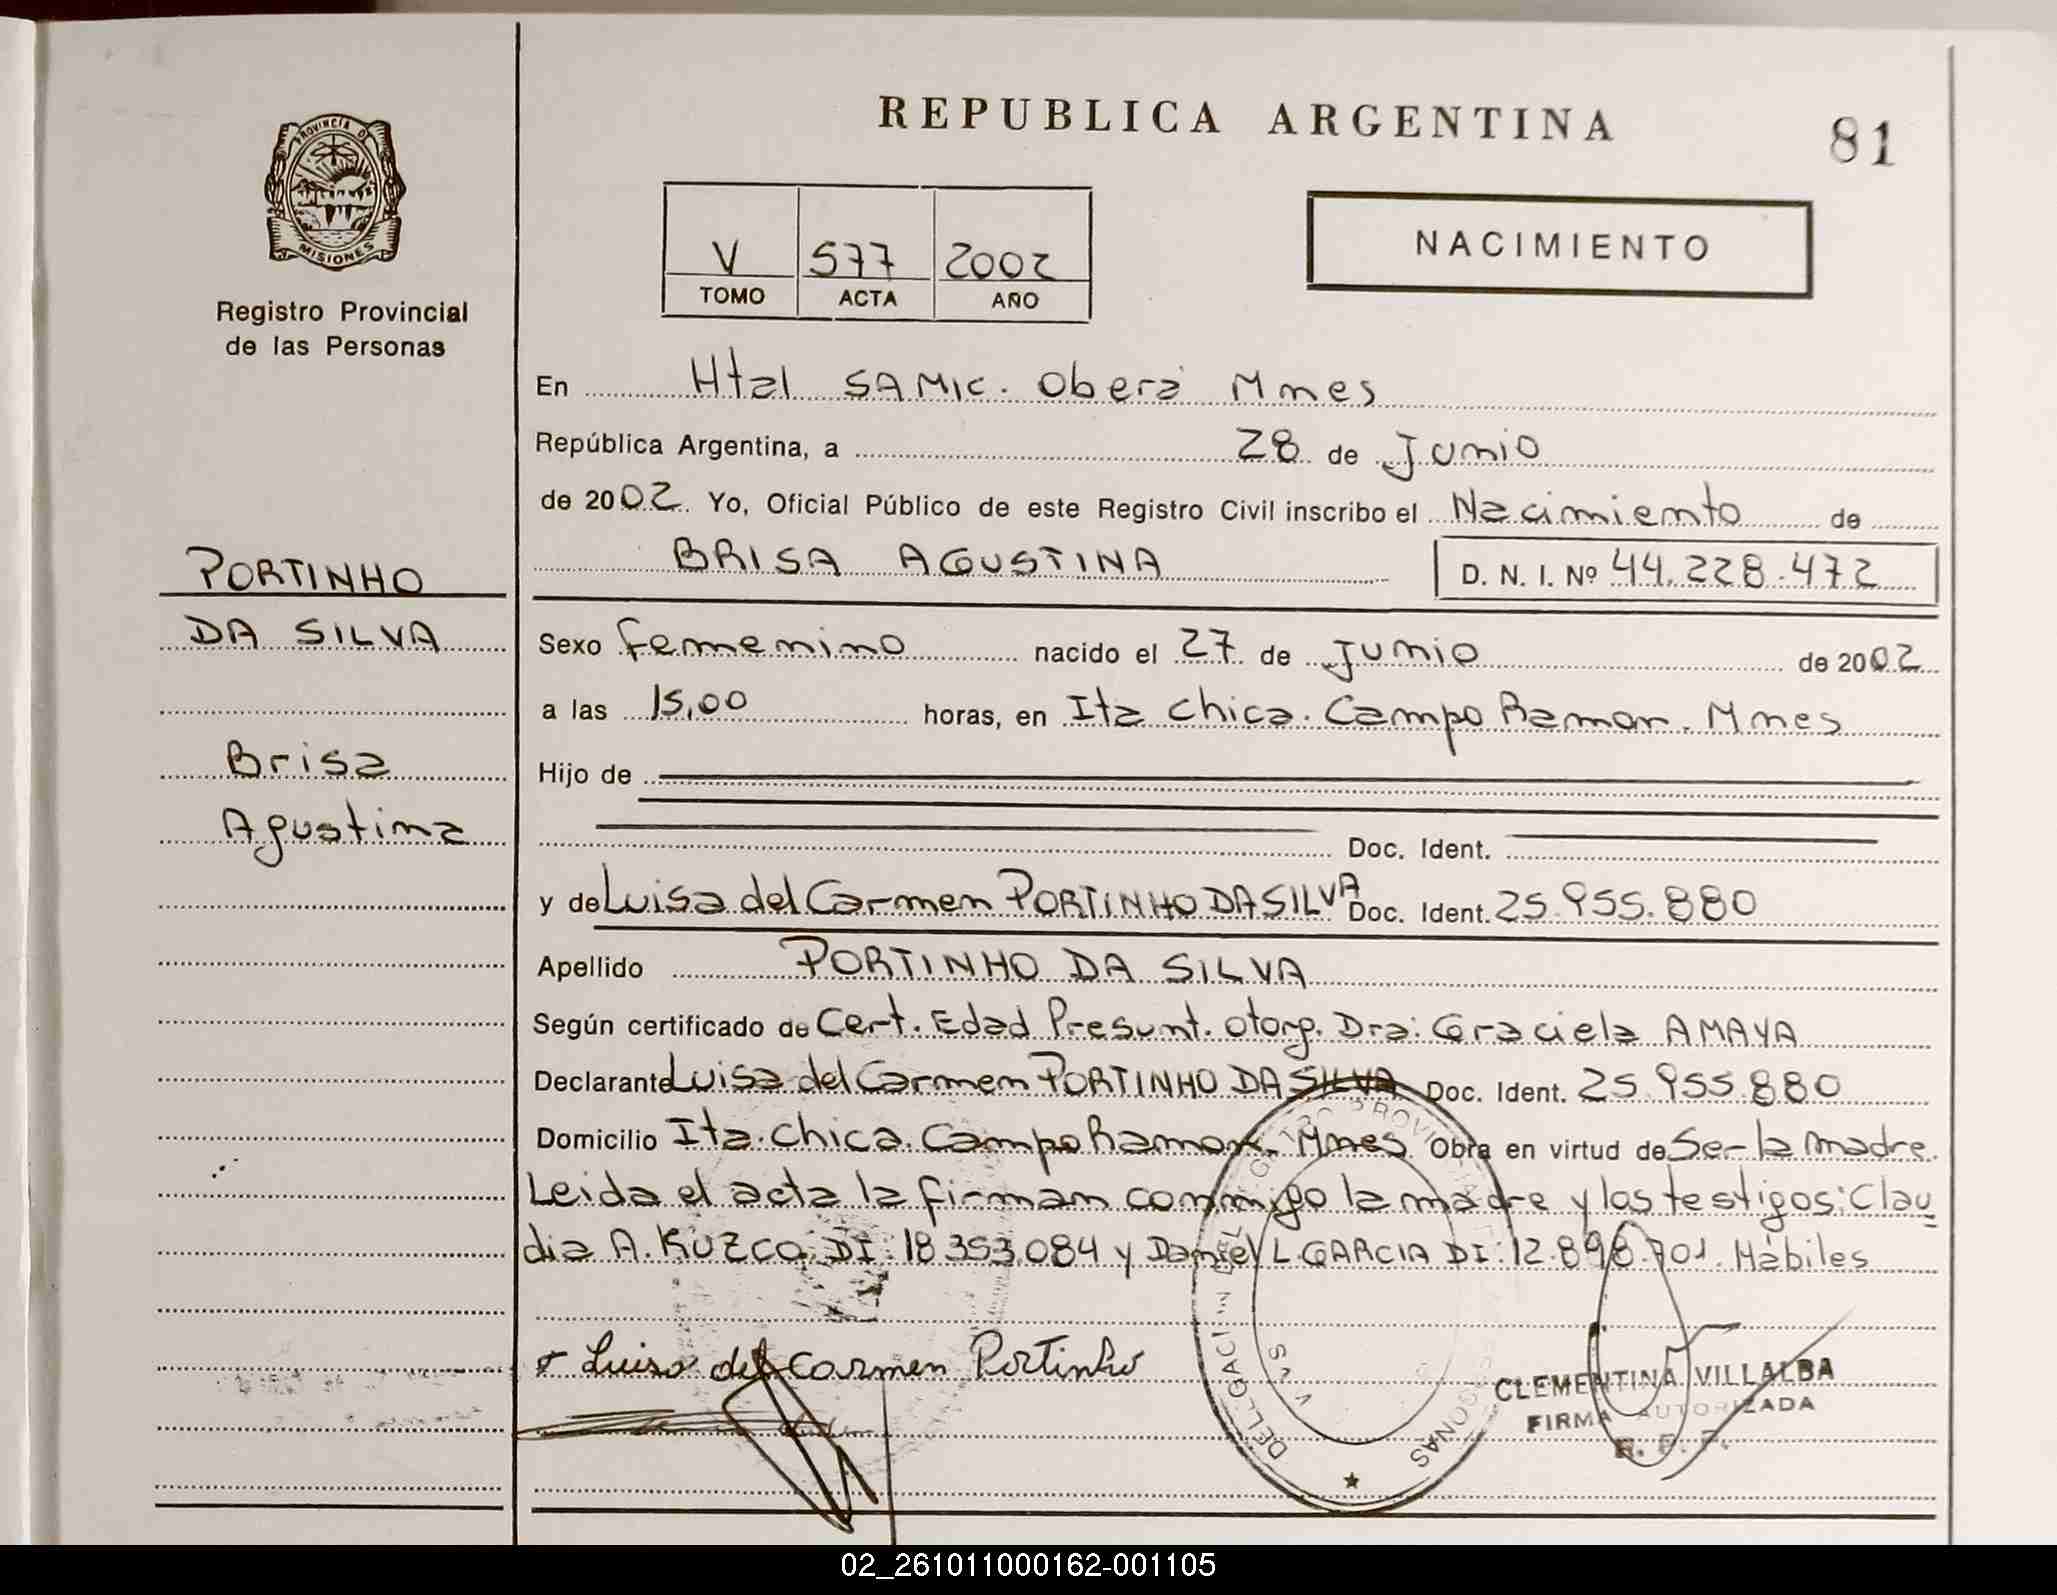 REPUBLICA ARGENTINA
81
PROVINCIA DE
MISIONES
Registro Provincial
de las Personas
V 577 2002
TOMO ACTA AÑO
NACIMIENTO
En Htal SAMIC. Oberá Mnes
República Argentina, a 28 de Junio
de 2002. Yo, Oficial Público de este Registro Civil inscribo el Nacimiento de
BRISA AGUSTINA D. N. I. Nº 44.228.472
PORTINHO
DA SILVA
Brisa
Agustina
Sexo femenino nacido el 27 de Junio de 2002
a las 15,00 horas, en Ita Chica. Campo Ramon. Mnes
Hijo de
Doc. Ident.
y de Luisa del Carmen PORTINHO DA SILVA Doc. Ident. 25.955.880
Apellido PORTINHO DA SILVA
Según certificado de Cert. Edad Presunt. otorg. Dra: Graciela AMAYA
Declarante Luisa del Carmen PORTINHO DA SILVA Doc. Ident. 25.955.880
Domicilio Ita. Chica. Campo Ramon. Mnes Obra en virtud de Ser la madre.
Leida el acta la firman conmigo la madre y los testigos: Clau
dia A. KUZCO DI: 18.353.084 y Daniel L. GARCIA DI: 12.898.701. Hábiles
Luisa del Carmen Portinho
CLEMENTINA VILLALBA
FIRMA AUTORIZADA
R. P. P.
02_261011000162-001105